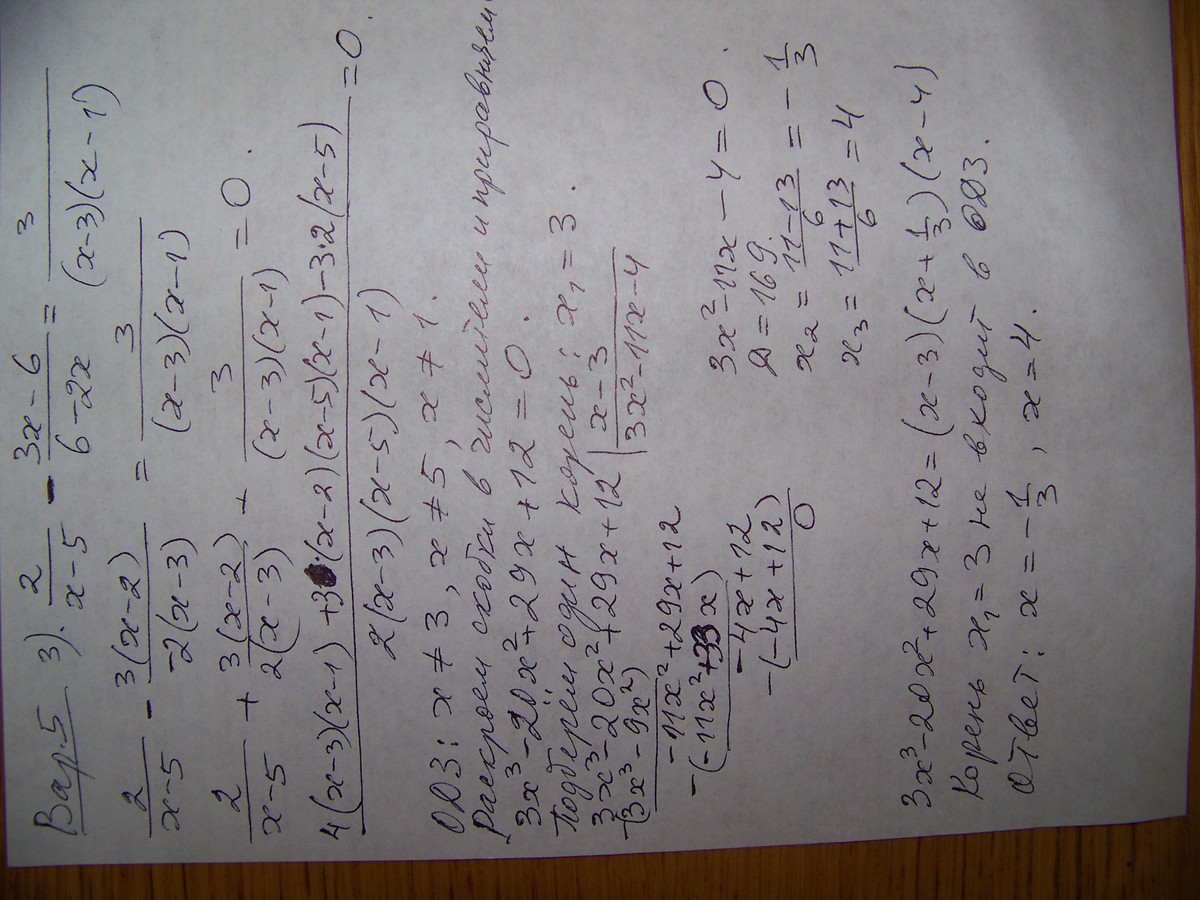 Вар. 5 3). 2/(x-5) - (3x-6)/(6-2x) = 3/((x-3)(x-1))
2/(x-5) - 3(x-2)/(-2(x-3)) = 3/((x-3)(x-1))
2/(x-5) + 3(x-2)/(2(x-3)) + 3/((x-3)(x-1)) = 0.
(4(x-3)(x-1) + 3(x-2)(x-5)(x-1) - 3·2(x-5))/(2(x-3)(x-5)(x-1)) = 0.
ОДЗ: x ≠ 3, x ≠ 5, x ≠ 1.
Раскроем скобки в числителе и приравняем
3x³-20x²+29x+12=0.
Подберём один корень: x₁ = 3.
3x³-20x²+29x+12 | x-3
-(3x³-9x²) 3x²-11x-4
-11x²+29x+12
-(-11x²+33x)
-4x+12
-(-4x+12)
0
3x²-11x-4=0.
D=169.
x₂ = (11-13)/6 = -1/3
x₃ = (11+13)/6 = 4
3x³-20x²+29x+12=(x-3)(x+1/3)(x-4)
Корень x₁=3 не входит в ОДЗ.
Ответ: x=-1/3, x=4.